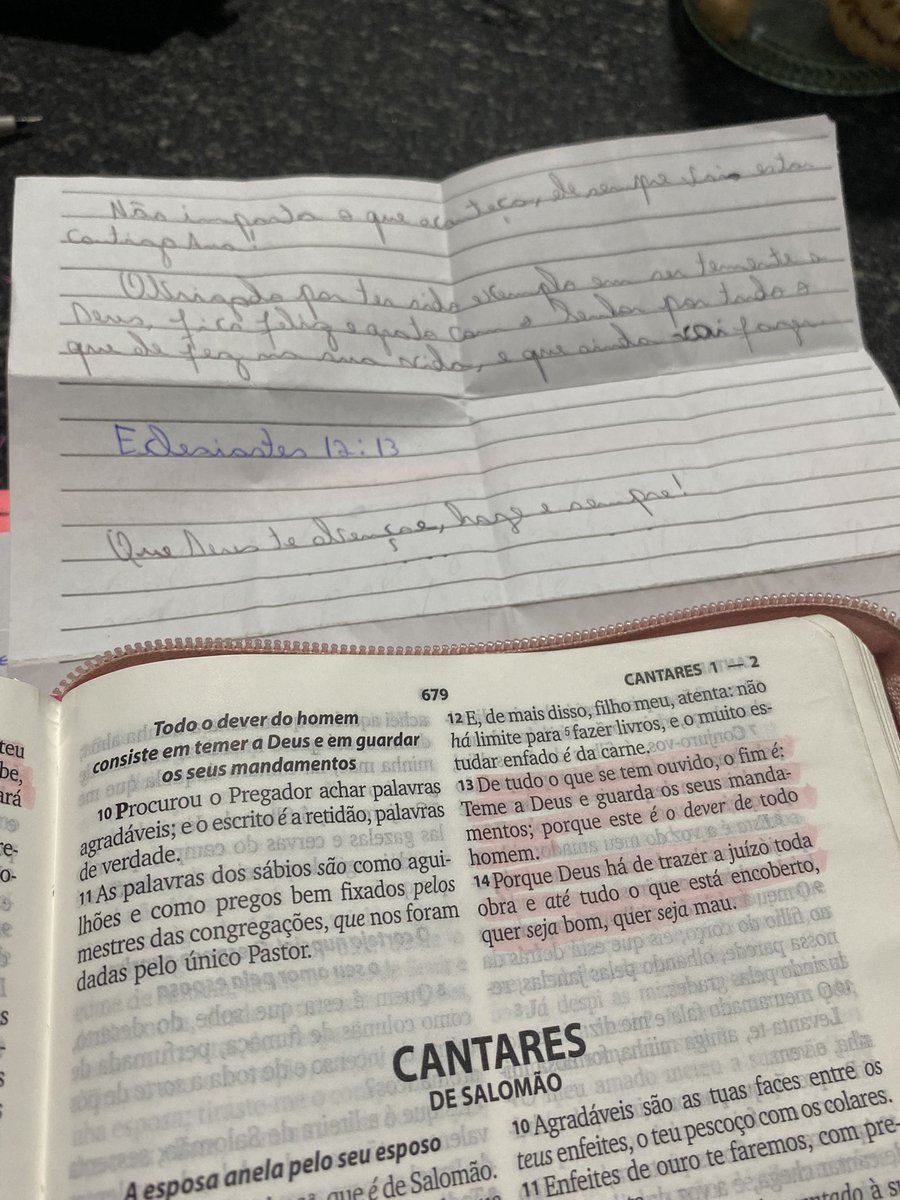 Não importa o que aconteça, ele sempre vai estar
contigo !!
Obrigado por ter sido exemplo em ser temente a
Deus, fico feliz e grato com o Senhor por tudo o
que ele fez na sua vida, e que ainda vai fazer
Eclesiastes 12:13
Que Deus te abençoe, hoje e sempre!
679
CANTARES 1 — 2
teu
be,
ará
re-
o-
Todo o dever do homem
consiste em temer a Deus e em guardar
os seus mandamentos
10 Procurou o Pregador achar palavras
agradáveis; e o escrito é a retidão, palavras
de verdade.
11 As palavras dos sábios são como agui-
lhões e como pregos bem fixados pelos
mestres das congregações, que nos foram
dadas pelo único Pastor.
12 E, de mais disso, filho meu, atenta: não
há limite para 5 fazer livros, e o muito es-
tudar enfado é da carne.
13 De tudo o que se tem ouvido, o fim é:
Teme a Deus e guarda os seus manda-
mentos; porque este é o dever de todo
homem.
14 Porque Deus há de trazer a juízo toda
obra e até tudo o que está encoberto,
quer seja bom, quer seja mau.
CANTARES
DE SALOMÃO
A esposa anela pelo seu esposo
que é de Salomão.
10 Agradáveis são as tuas faces entre os
teus enfeites, o teu pescoço com os colares.
11 Enfeites de ouro te faremos, com pre-